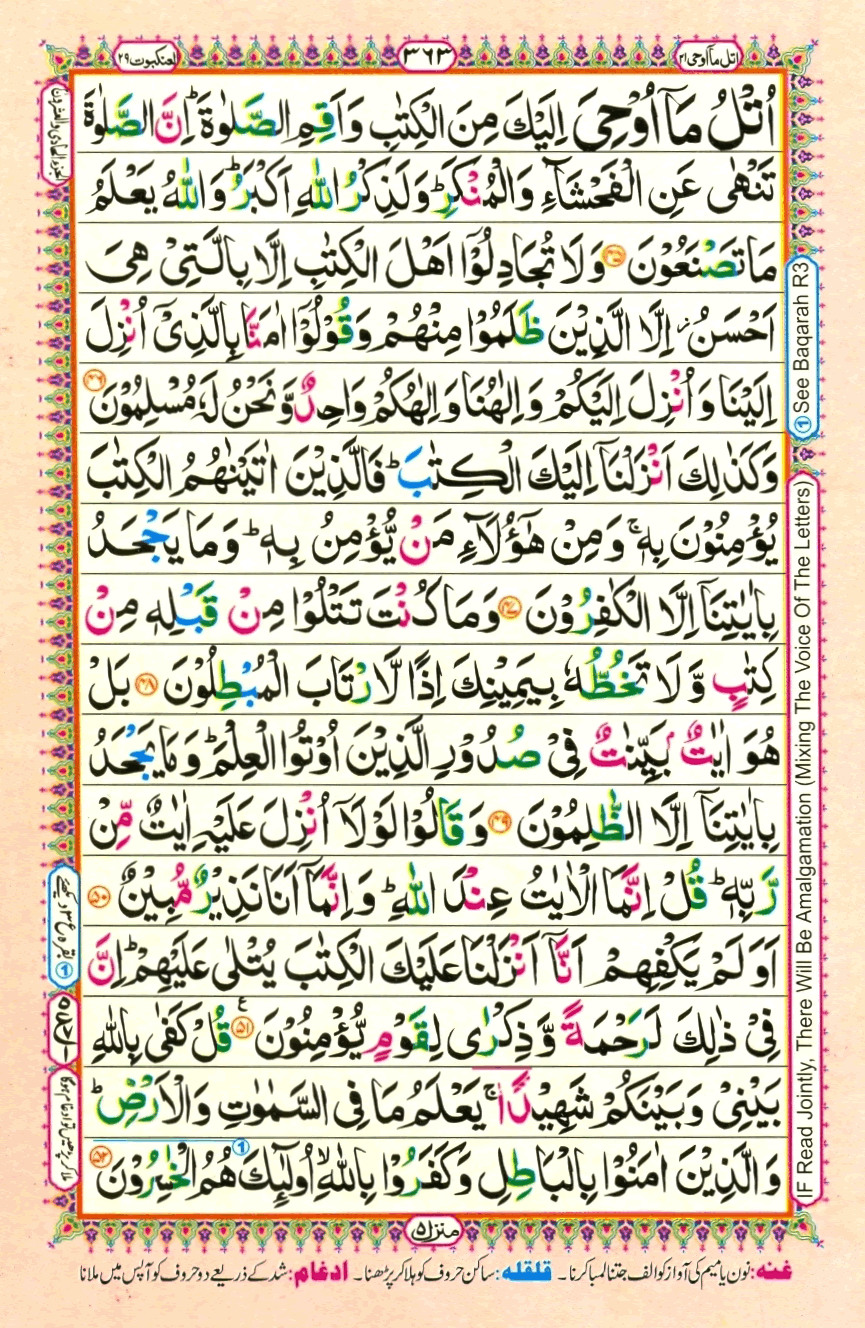 اتل ماۤ اوحی ۲۱
۳۶۳
العنکبوت ۲۹
اُتْلُ مَاۤ اُوْحِیَ اِلَیْكَ مِنَ الْكِتٰبِ وَ اَقِمِ الصَّلٰوةَؕ اِنَّ الصَّلٰوةَ
تَنْهٰى عَنِ الْفَحْشَآءِ وَ الْمُنْكَرِؕ وَ لَذِكْرُ اللّٰهِ اَكْبَرُؕ وَ اللّٰهُ یَعْلَمُ
مَا تَصْنَعُوْنَ ۴۵ وَ لَا تُجَادِلُوْۤا اَهْلَ الْكِتٰبِ اِلَّا بِالَّتِیْ هِیَ
اَحْسَنُ ۖ اِلَّا الَّذِیْنَ ظَلَمُوْا مِنْهُمْ وَ قُوْلُوْۤا اٰمَنَّا بِالَّذِیْۤ اُنْزِلَ
اِلَیْنَا وَ اُنْزِلَ اِلَیْكُمْ وَ اِلٰهُنَا وَ اِلٰهُكُمْ وَاحِدٌ وَّ نَحْنُ لَهٗ مُسْلِمُوْنَ ۴۶
وَ كَذٰلِكَ اَنْزَلْنَاۤ اِلَیْكَ الْكِتٰبَؕ فَالَّذِیْنَ اٰتَیْنٰهُمُ الْكِتٰبَ
یُؤْمِنُوْنَ بِهٖۚ وَ مِنْ هٰۤؤُلَآءِ مَنْ یُّؤْمِنُ بِهٖؕ وَ مَا یَجْحَدُ
بِاٰیٰتِنَاۤ اِلَّا الْكٰفِرُوْنَ ۴۷ وَ مَا كُنْتَ تَتْلُوْا مِنْ قَبْلِهٖ مِنْ
كِتٰبٍ وَّ لَا تَخُطُّهٗ بِیَمِیْنِكَ اِذًا لَّارْتَابَ الْمُبْطِلُوْنَ ۴۸ بَلْ
هُوَ اٰیٰتٌۢ بَیِّنٰتٌ فِیْ صُدُوْرِ الَّذِیْنَ اُوْتُوا الْعِلْمَؕ وَ مَا یَجْحَدُ
بِاٰیٰتِنَاۤ اِلَّا الظّٰلِمُوْنَ ۴۹ وَ قَالُوْا لَوْ لَاۤ اُنْزِلَ عَلَیْهِ اٰیٰتٌ مِّنْ
رَّبِّهٖؕ قُلْ اِنَّمَا الْاٰیٰتُ عِنْدَ اللّٰهِؕ وَ اِنَّمَاۤ اَنَا نَذِیْرٌ مُّبِیْنٌ ۵۰
اَوَ لَمْ یَكْفِهِمْ اَنَّاۤ اَنْزَلْنَا عَلَیْكَ الْكِتٰبَ یُتْلٰى عَلَیْهِمْؕ اِنَّ
فِیْ ذٰلِكَ لَرَحْمَةً وَّ ذِكْرٰى لِقَوْمٍ یُّؤْمِنُوْنَ ۵۱ ع قُلْ كَفٰى بِاللّٰهِ
بَیْنِیْ وَ بَیْنَكُمْ شَهِیْدًاۚ یَعْلَمُ مَا فِی السَّمٰوٰتِ وَ الْاَرْضِؕ
وَ الَّذِیْنَ اٰمَنُوْا بِالْبَاطِلِ وَ كَفَرُوْا بِاللّٰهِۙ اُولٰٓىِٕكَ هُمُ الْخٰسِرُوْنَ ۵۲
① See Baqarah R3
IF Read Jointly, There Will Be Amalgamation (Mixing The Voice Of The Letters)
الجزء الحادی و العشرون
① بقرہ ع ۳ دیکھئے
ملا کر پڑھیں تو ادغام ہوگا
منزل ۵
غنه: نون یا میم کی آواز کو الف جتنا لمبا کرنا۔ قلقله: ساکن حروف کو ہلا کر پڑھنا۔ ادغام: شد کے ذریعے دو حروف کو آپس میں ملانا